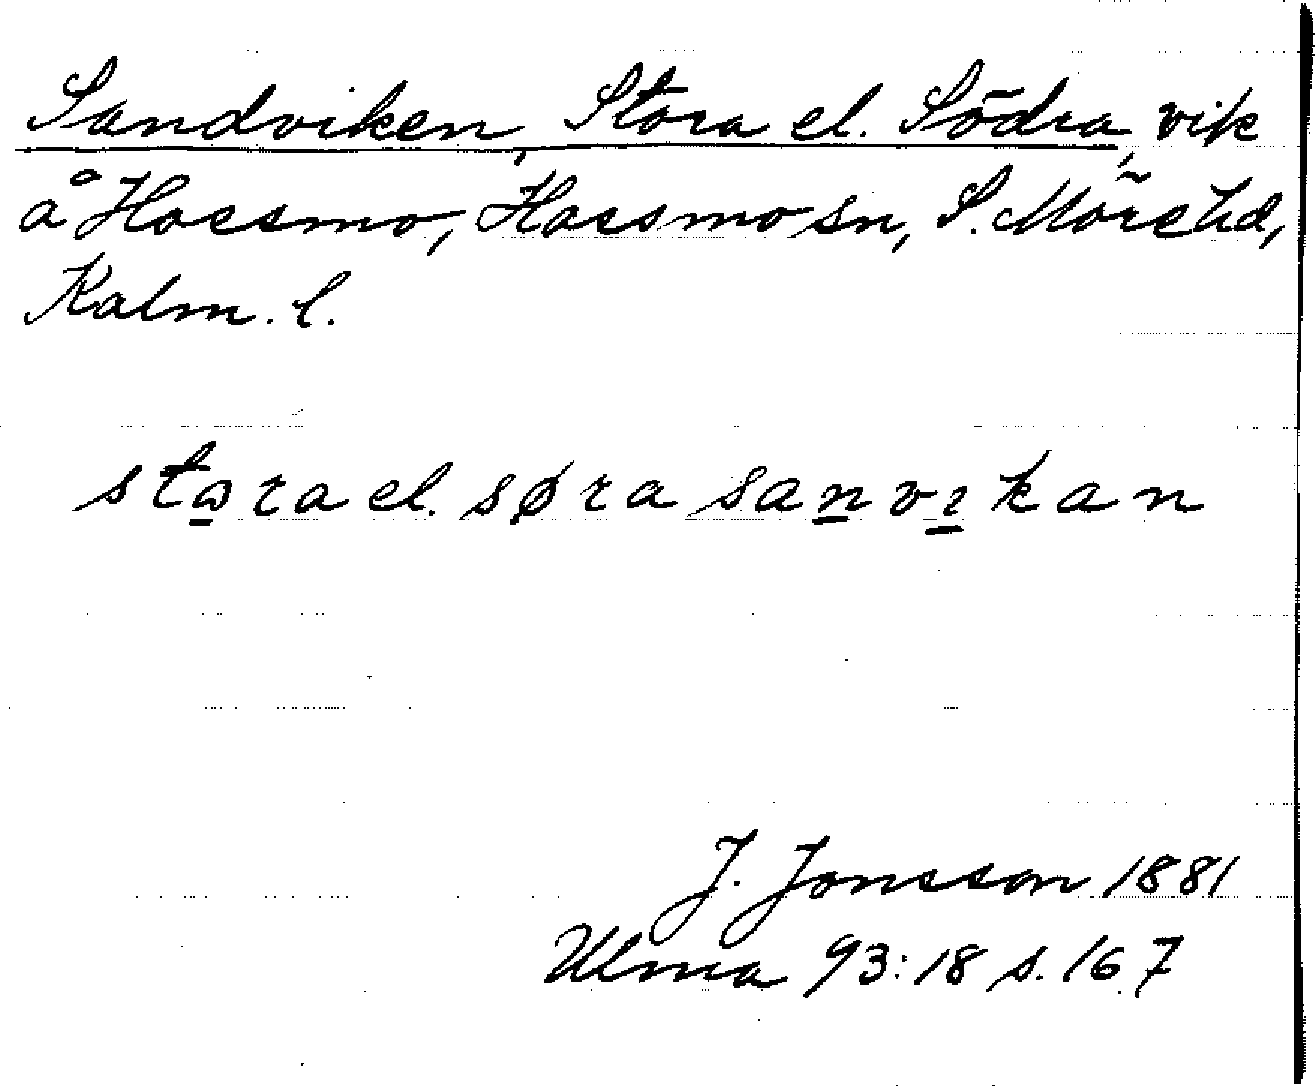 Sandviken, Stora el. Södra, vik
å Hossmo, Hossmo sn, S. Möre hd,
Kalm. l.
stɷra el. søra sanvıkan
J. Jonsson 1881
Ulma 93:18 s. 167